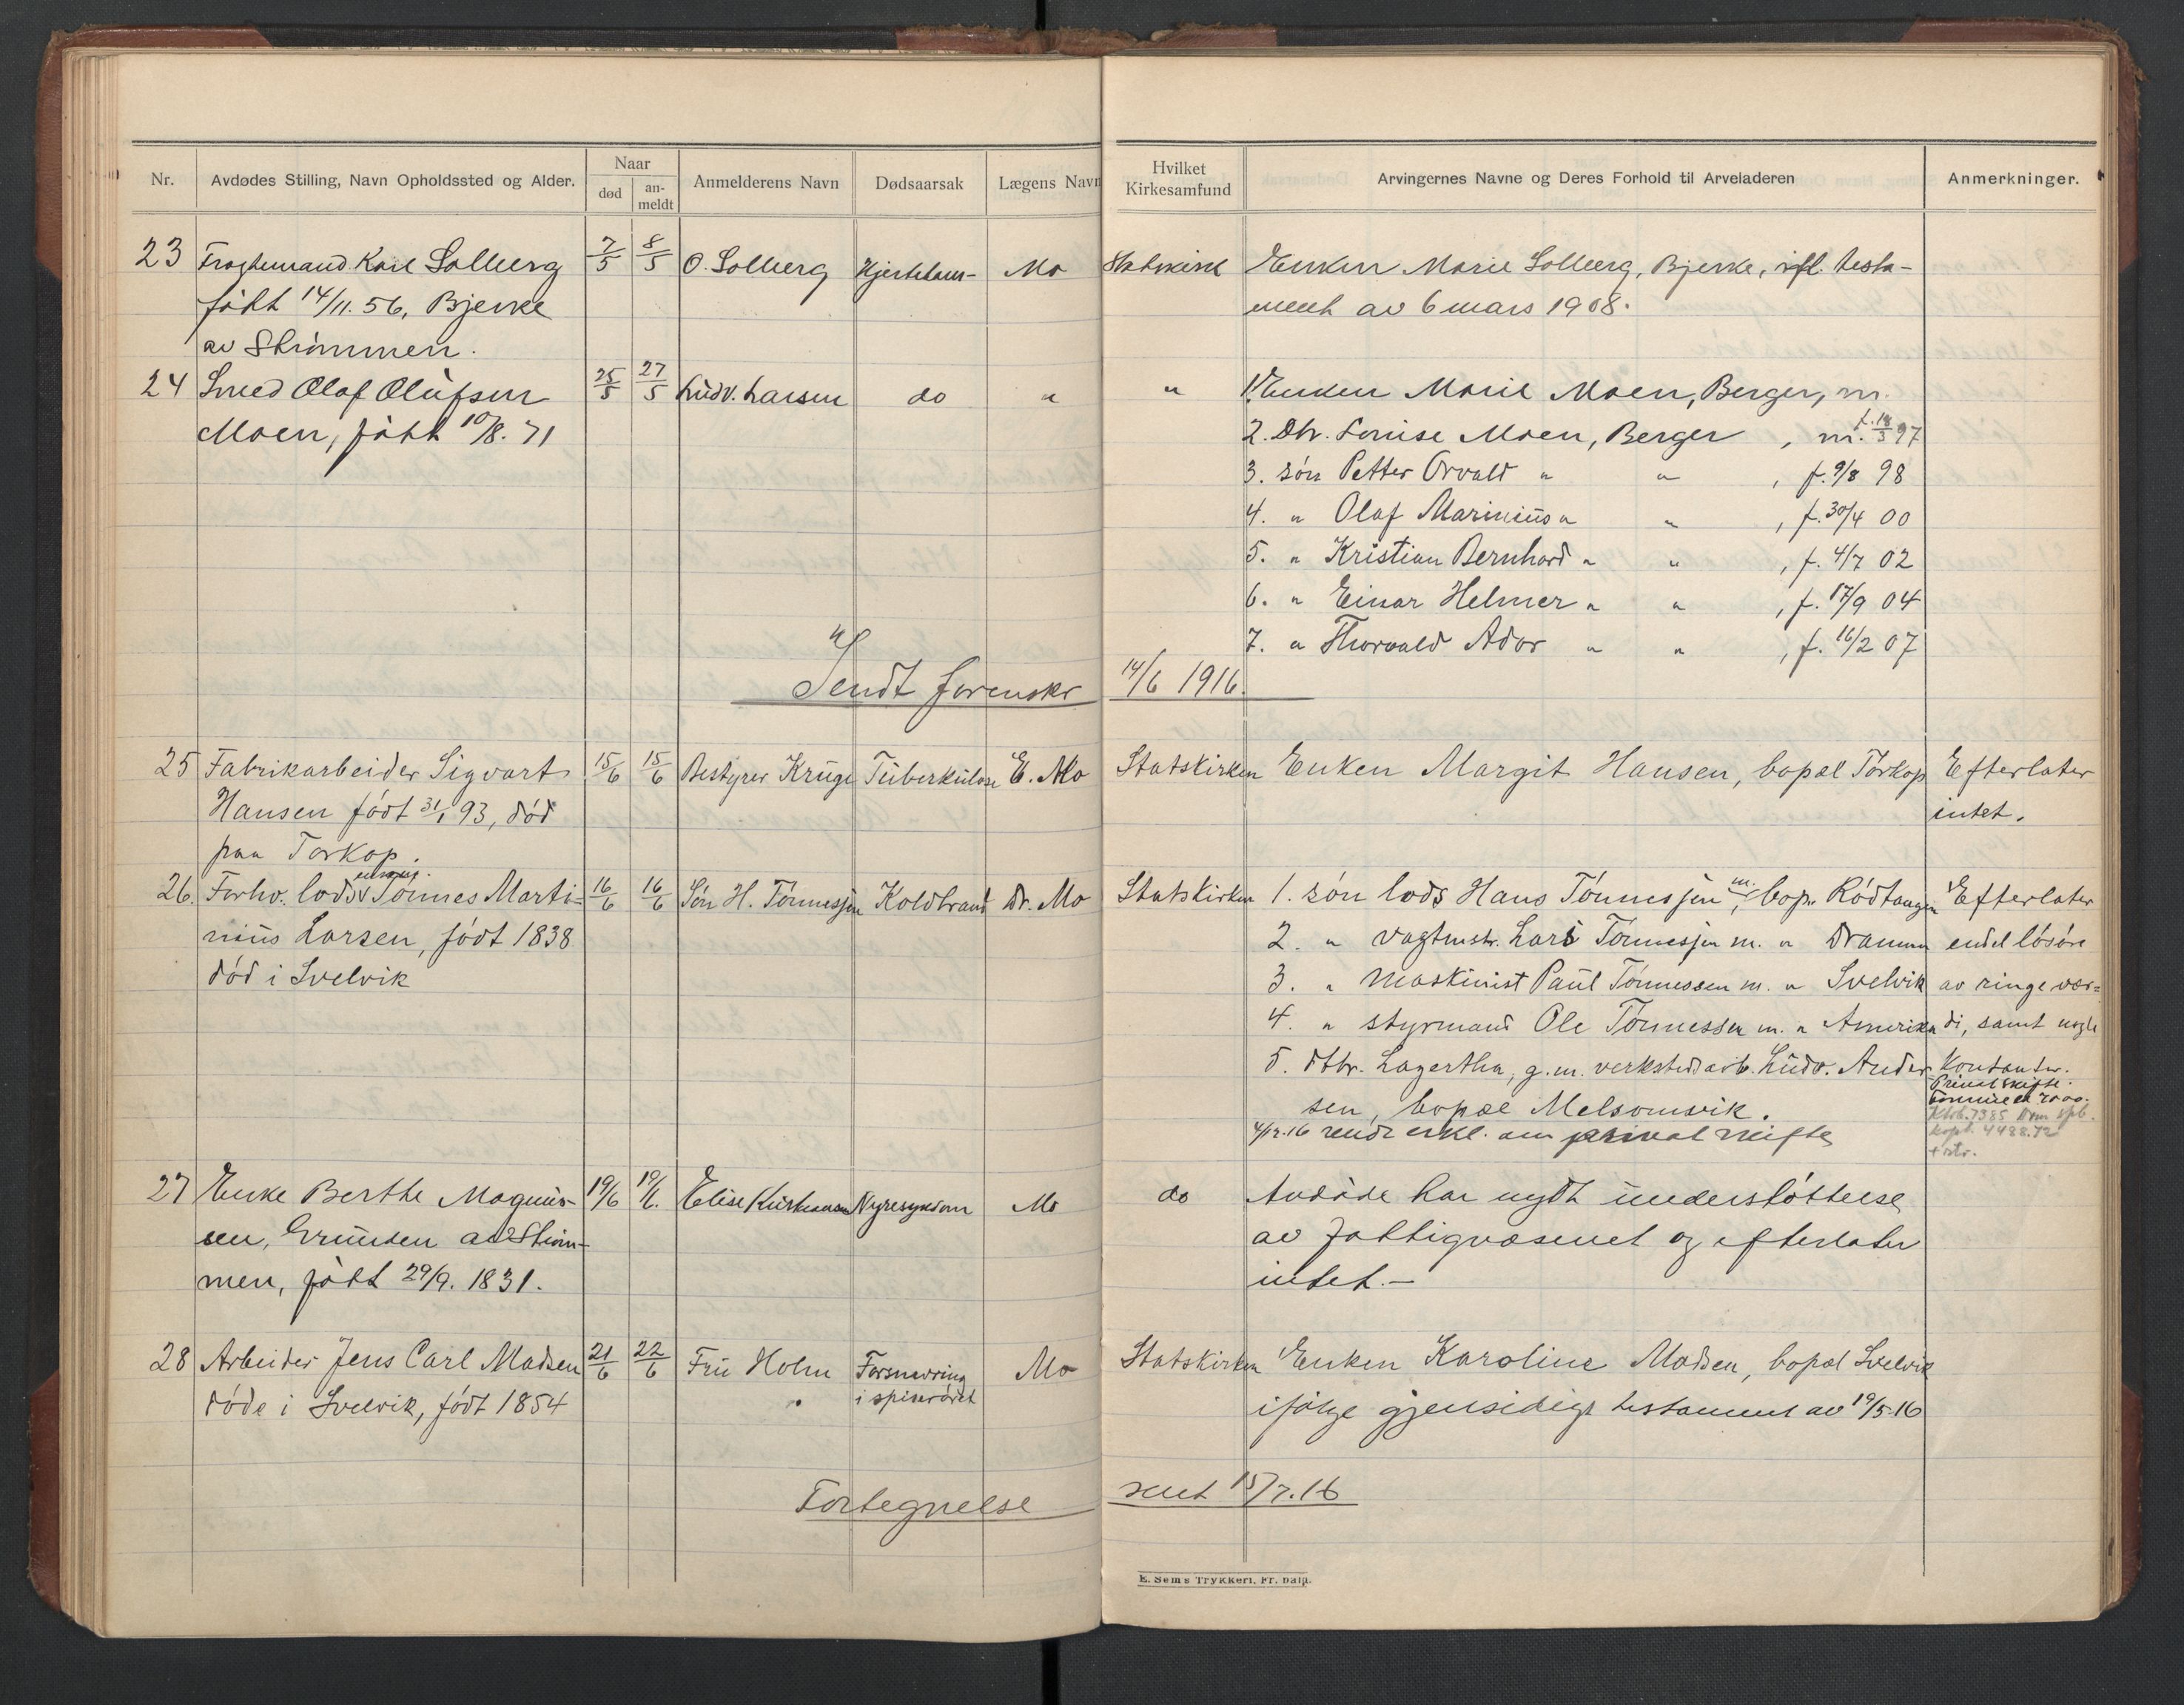 Nr.
Avdødes Stilling, Navn Opholdssted og Alder.
Naar
død
an-
meldt
Anmelderens Navn
Dødsaarsak
Lægens Navn
Hvilket
Kirkesamfund
Arvingernes Navne og Deres Forhold til Arveladeren
Anmerkninger.
23 Fragtemand Karl Solberg 7/5 8/5 O. Solberg Mo Enken Marie Solberg, Bjerke, ifl. testa-
født 14/11. 56, Bjerke ment av 6 mars 1908.
av Strømmen.
24 Smed Olaf Olufsen 25/5 27/5 Ludv. Larsen do " " 1. Enken Marie Moen, Berger, m.
Moen, født 10/8. 71 2. Dtr. Louise Moen, Berger, m. f. 18/3 97
3. søn Petter Orvald " " , f. 9/8 98
4. " Olaf Marinius " " , f. 30/4 00
5. " Kristian Bernhard " " , f. 4/7 02
6. " Einar Helmer " " , f. 17/9 04
7. " Thorvald Ador " " , f. 16/2 07
Sendt forenskr 14/6 1916.
25 Fabrikarbeider Sigvart 15/6 15/6 Bestyrer Kruge Tuberkulose E. Mo Statskirken Enken Margit Hansen, bopæl Torkop Efterlater
Hansen født 31/1 93, død intet.
paa Torkop.
26. Forhv. lods Tønnes Marti- 16/6 16/6 Søn H. Tønnesjen Koldbrand Dr. Mo Statskirken 1. søn lods Hans Tønnesjen m., bop. Rødtangen Efterlater
nius Larsen, født 1838 2. " vagtmstr. Lars Tønnesjen m. " Drammen endel løsøre
død i Svelvik 3. " maskinist Paul Tønnessen m. " Svelvik av ringe vær-
4. " styrmand Ole Tønnessen m. " Amerika di, samt nogle
5. dtr. Lagertha, g. m. verkstedsarb. Ludv. Ander- Kontanter.
sen, bopæl Melsomvik. Privat skifte.
4/12.16 sendt erkl. om privat skifte
4488.72
27 Enke Berthe Magnus- 19/6 19/6. Elise Nyresygdom Mo do Avdøde har nydt understøttelse
sen, Grunden av Strøm- av Fattigvæsenet og efterlater
men, født 29/9. 1831. intet. —
28 Arbeider Jens Carl Madsen 21/6 22/6 Fru Holm Forsnevring Mo Statskirken Enken Karoline Madsen, bopæl Svelvik
døde i Svelvik, født 1854 i spiserøret ifølge gjensidig testament av 19/5-16
Fortegnelse sent 15/7.16
E. Sem's Trykkeri, Fr. hald.